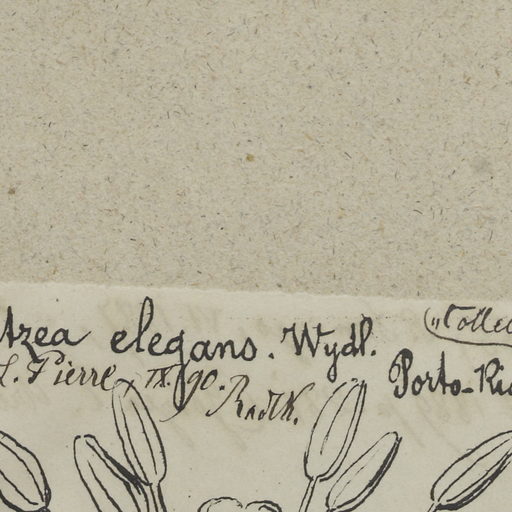 elegans. Wydl. („Collec
L. Pierre, IX. 90. Radlk. Porto-Ric